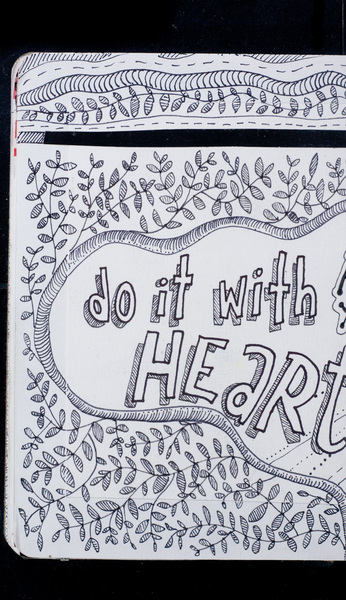 do it with
HEaRt